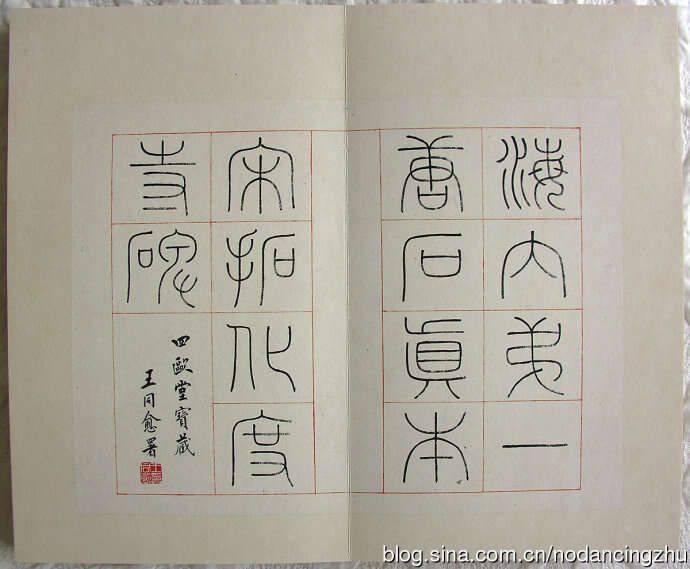 海内弟一
唐石真本
宋拓化度
寺碑
四歐堂寶藏
王同愈署
blog.sina.com.cn/nodancingzhu